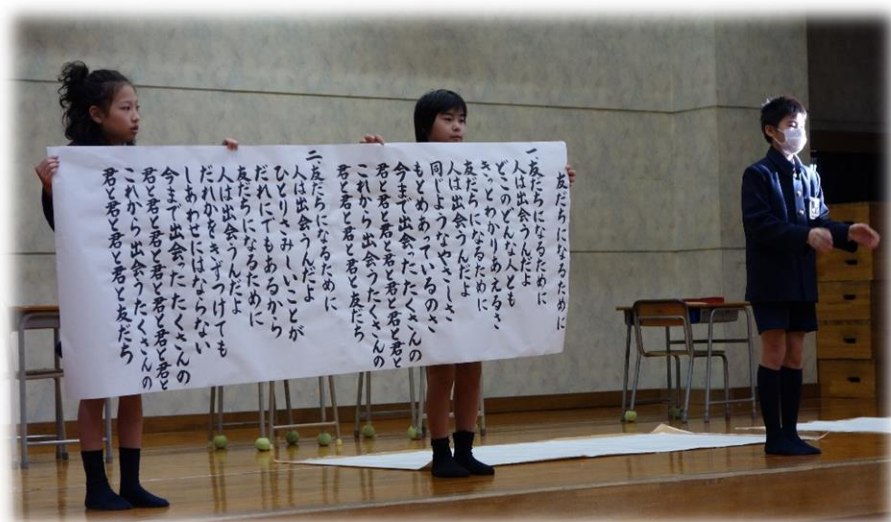 友だちになるために
一 友だちになるために
人は出会うんだよ
どこのどんな人とも
きっとわかりあえるさ
友だちになるために
人は出会うんだよ
同じようなやさしさ
もとめあっているのさ
今まで出会ったたくさんの
君と君と君と君と君と君と
これから出会うたくさんの
君と君と君と君と友だち
二 友だちになるために
人は出会うんだよ
ひとりさみしいことが
だれにでもあるから
友だちになるために
人は出会うんだよ
だれかをきずつけても
しあわせにはならない
今まで出会ったたくさんの
君と君と君と君と君と君と
これから出会うたくさんの
君と君と君と君と友だち